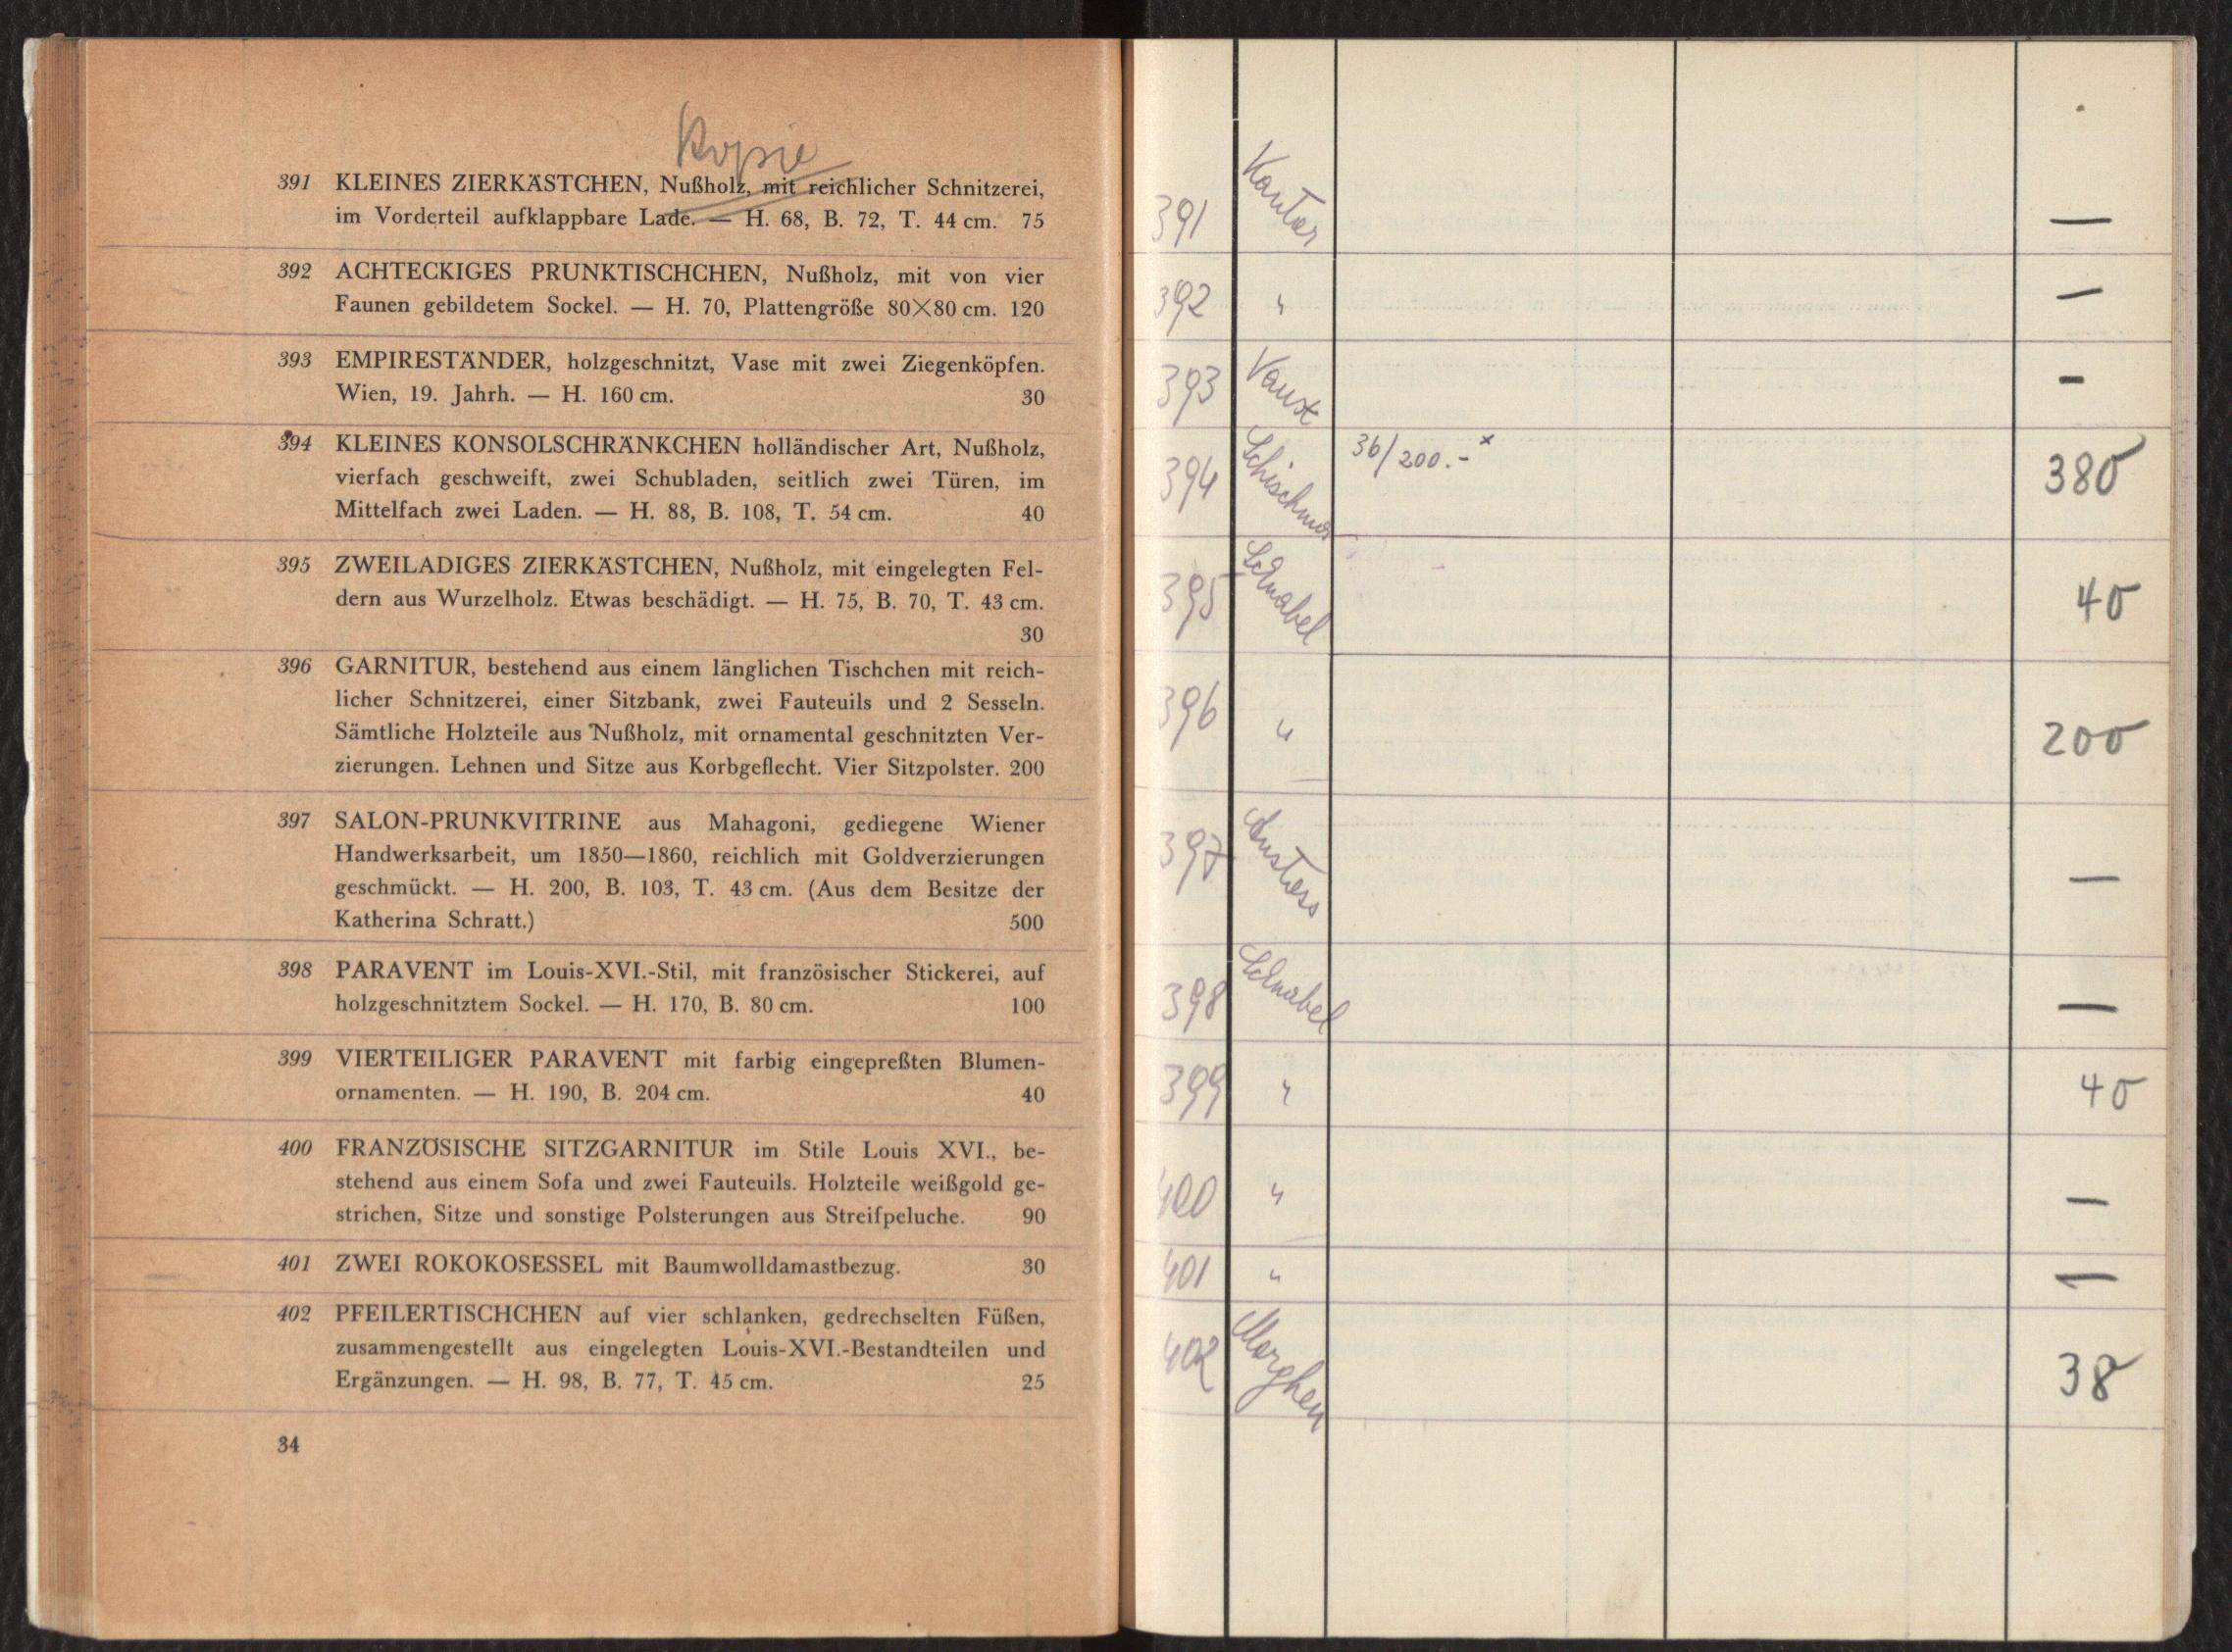 Kopie
391 KLEINES ZIERKÄSTCHEN, Nußholz, mit reichlicher Schnitzerei,
im Vorderteil aufklappbare Lade. — H. 68, B. 72, T. 44 cm. 75
392 ACHTECKIGES PRUNKTISCHCHEN, Nußholz, mit von vier
Faunen gebildetem Sockel. — H. 70, Plattengröße 80×80 cm. 120
393 EMPIRESTÄNDER, holzgeschnitzt, Vase mit zwei Ziegenköpfen.
Wien, 19. Jahrh. — H. 160 cm. 30
394 KLEINES KONSOLSCHRÄNKCHEN holländischer Art, Nußholz,
vierfach geschweift, zwei Schubladen, seitlich zwei Türen, im
Mittelfach zwei Laden. — H. 88, B. 108, T. 54 cm. 40
395 ZWEILADIGES ZIERKÄSTCHEN, Nußholz, mit eingelegten Fel-
dern aus Wurzelholz. Etwas beschädigt. — H. 75, B. 70, T. 43 cm.
30
396 GARNITUR, bestehend aus einem länglichen Tischchen mit reich-
licher Schnitzerei, einer Sitzbank, zwei Fauteuils und 2 Sesseln.
Sämtliche Holzteile aus Nußholz, mit ornamental geschnitzten Ver-
zierungen. Lehnen und Sitze aus Korbgeflecht. Vier Sitzpolster. 200
397 SALON-PRUNKVITRINE aus Mahagoni, gediegene Wiener
Handwerksarbeit, um 1850—1860, reichlich mit Goldverzierungen
geschmückt. — H. 200, B. 103, T. 43 cm. (Aus dem Besitze der
Katherina Schratt.) 500
398 PARAVENT im Louis-XVI.-Stil, mit französischer Stickerei, auf
holzgeschnitztem Sockel. — H. 170, B. 80 cm. 100
399 VIERTEILIGER PARAVENT mit farbig eingepreßten Blumen-
ornamenten. — H. 190, B. 204 cm. 40
400 FRANZÖSISCHE SITZGARNITUR im Stile Louis XVI., be-
stehend aus einem Sofa und zwei Fauteuils. Holzteile weißgold ge-
strichen, Sitze und sonstige Polsterungen aus Streifpeluche. 90
401 ZWEI ROKOKOSESSEL mit Baumwolldamastbezug. 30
402 PFEILERTISCHCHEN auf vier schlanken, gedrechselten Füßen,
zusammengestellt aus eingelegten Louis-XVI.-Bestandteilen und
Ergänzungen. — H. 98, B. 77, T. 45 cm. 25
34
391 Kantor —
392 " —
393 —
394 36/200.- x 380
395 Schnabel 40
396 " 200
397 —
398 Schnabel —
399 " 40
400 " —
401 " —
402 Morghen 38